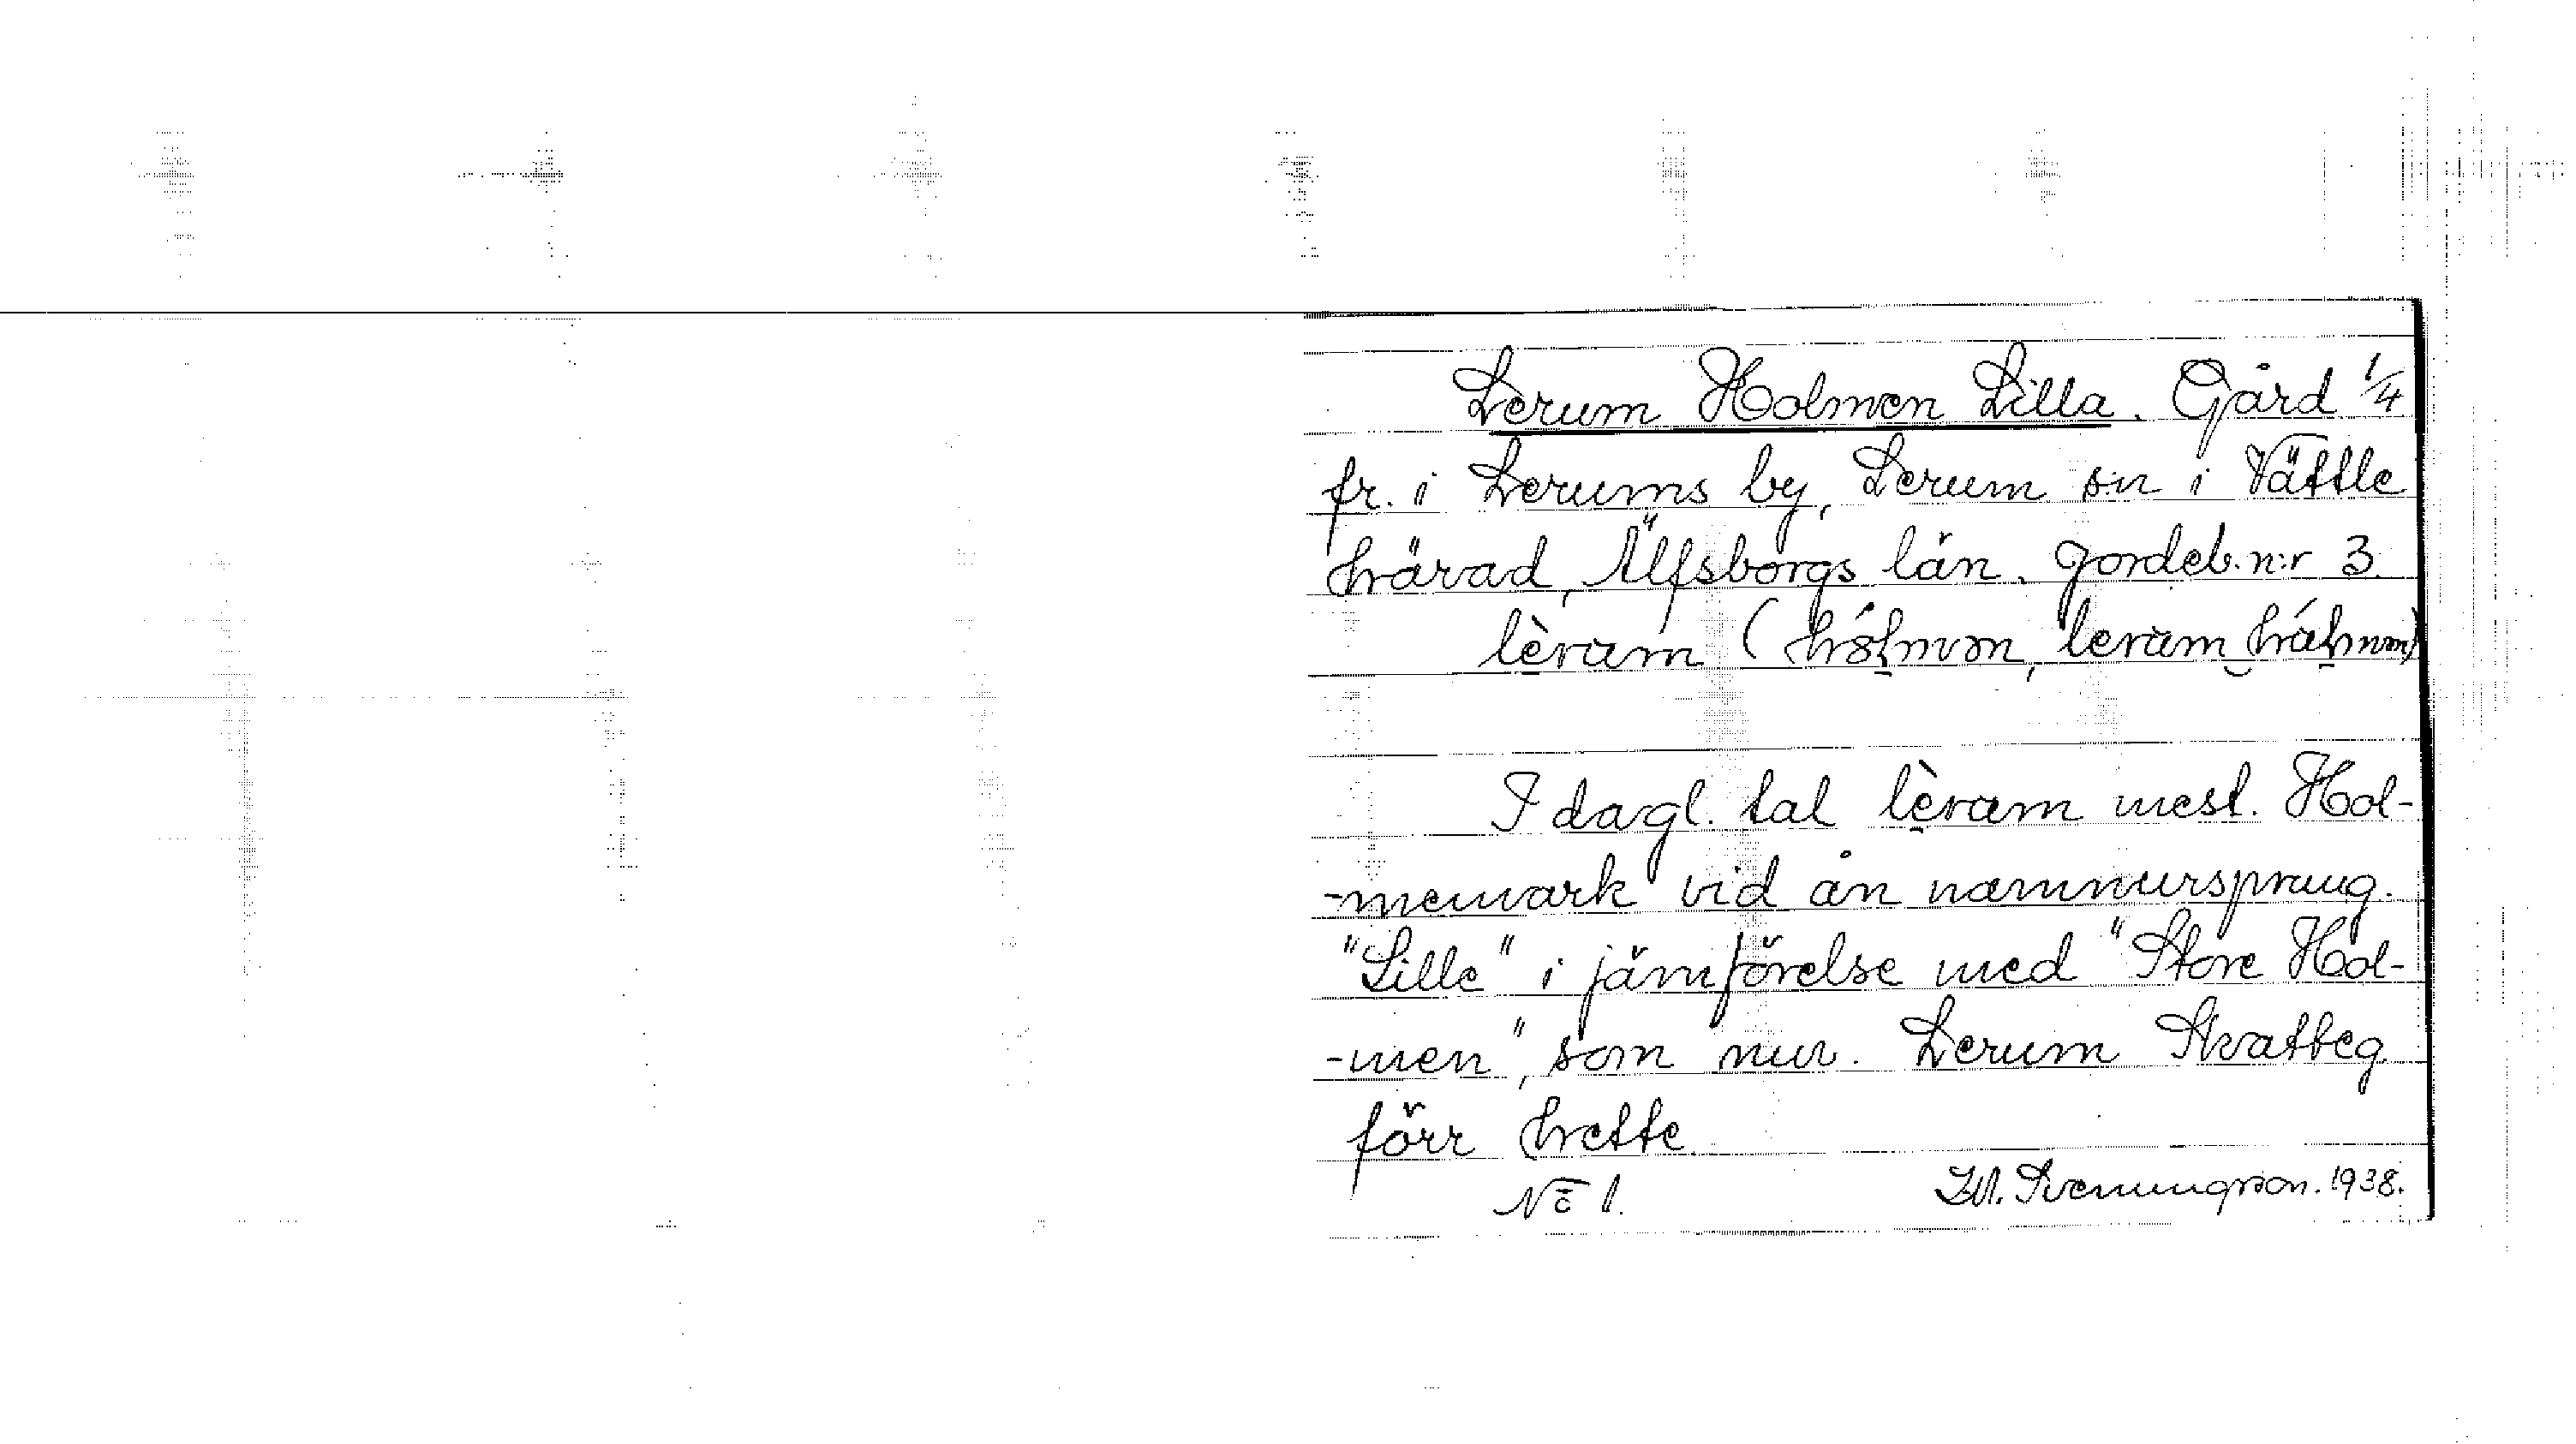 Lerum Holmen Lilla. Gård 1/4
fr. i Lerums by, Lerum sn i Vättle
härad, Älfsborgs län. Jordeb. n:r 3.
lèram (hólmən, leram
I dagl. tal lèram mest. Hol-
-menvark vid ån namnursprung.
"Lille" i jämförelse med "Store Hol-
-men", som nuv. Lerum Skatteg
förr hette.
No 1. Svenungsson. 1938.